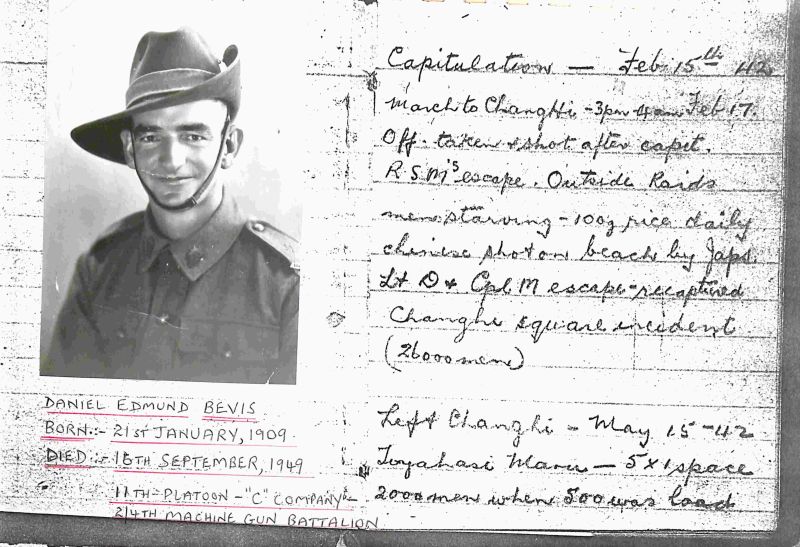 DANIEL EDMUND BEVIS
BORN:- 21ST JANUARY, 1909
DIED:- 16TH SEPTEMBER, 1949
11TH-PLATOON-"C" COMPANY-
2/4TH MACHINE GUN BATTALION
Capitulation — Feb 15th 42
March to Changhi - 3pm 4am Feb 17.
Off. taken & shot after capit.
R S M's escape. Outside Raids
men starving - 10oz rice daily
chinese shot on beach by Japs.
Lt D & Cpl M escape - recaptured
Changhi square incident
(26000 men)
Left Changhi - May 15-42
Toyahasi Maru - 5x1 space
2000 men when 500 was load